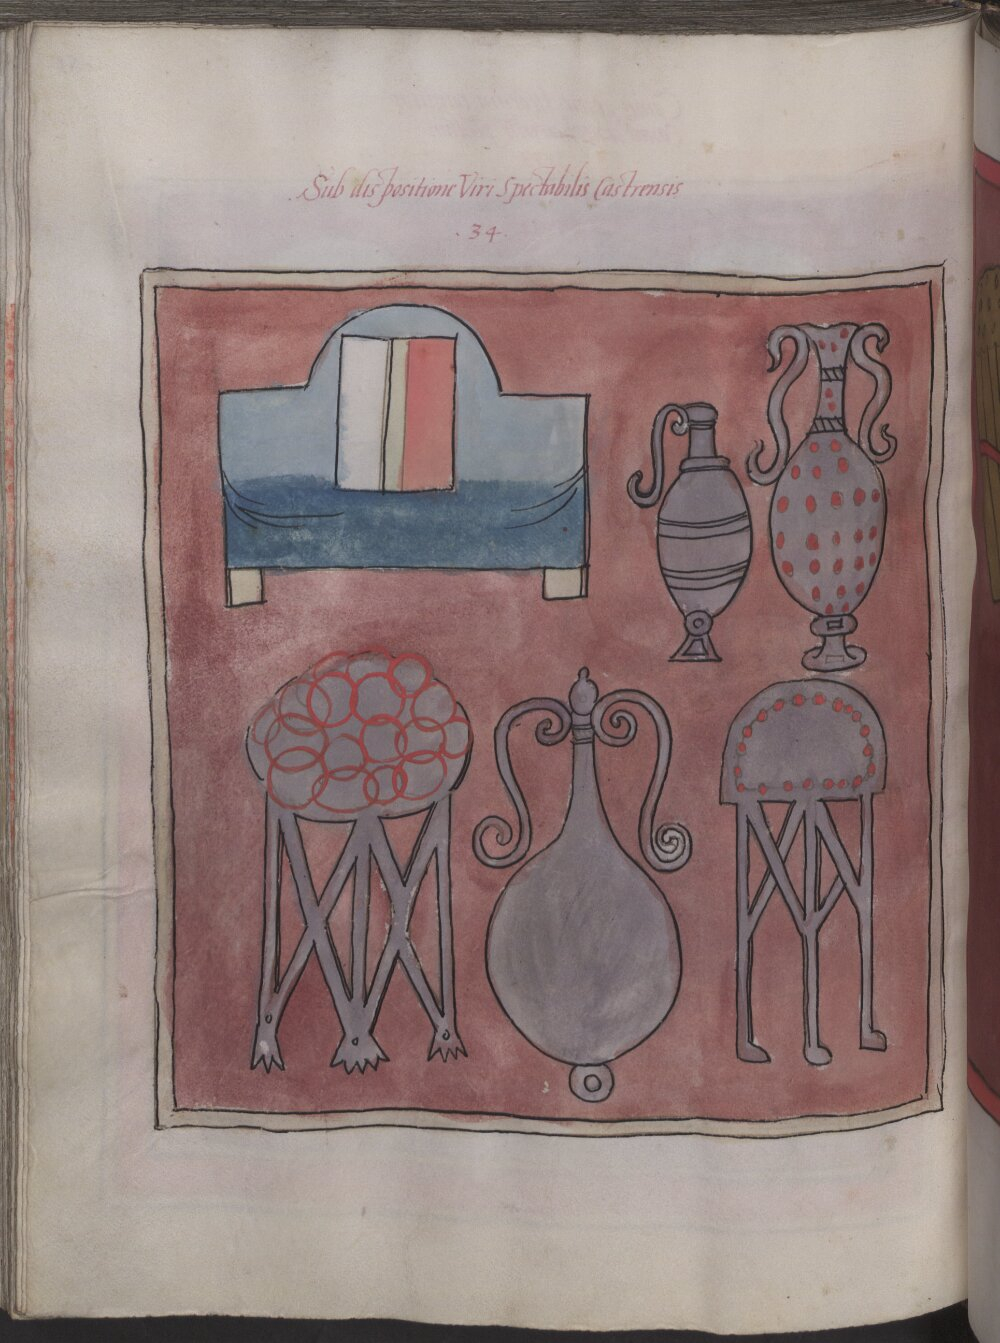 Sub dispositione Viri Spectabilis Castrensis
.34.